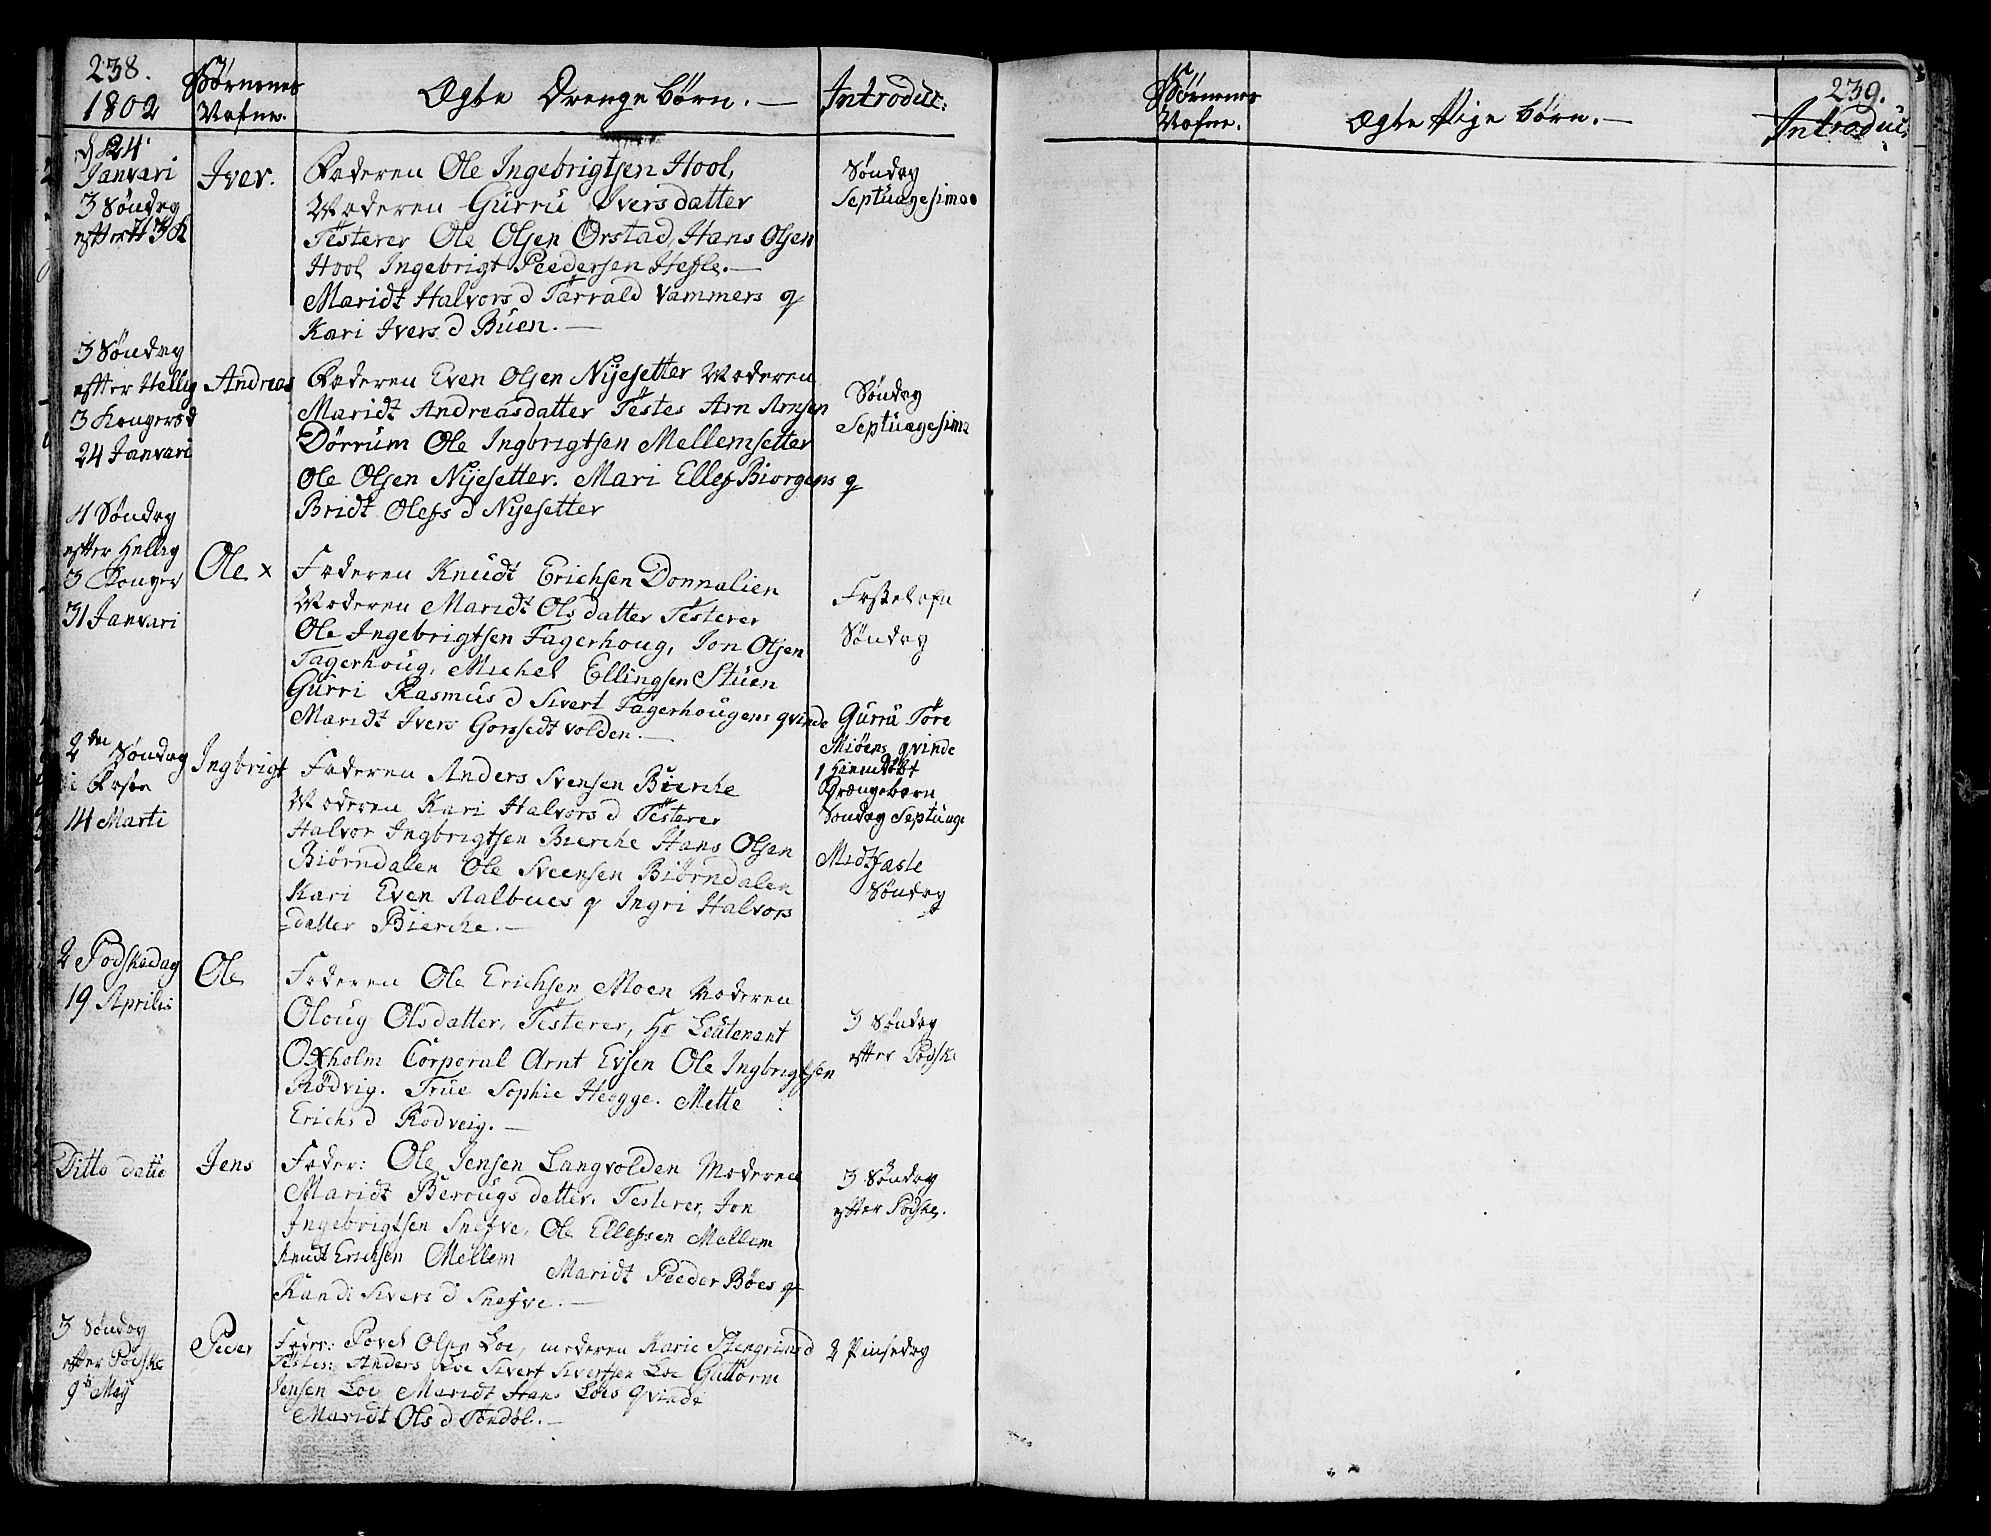 238.
1802
Børnenes
Nafne.
Ægte Drengebørn. —
Introduc:
d 24
Januari
3 Søndag
efter H 3 K
Iver.
Faderen Ole Ingebrigtsen Hool,
Moderen Gurru Iversdatter
Testerer Ole Olsen Ørstad, Hans Olsen
Hool Ingebrigt Peedersen Hefle. —
Maridt Halvors d Tarrald Vammers q
Kari Ivers d Buen. —
Søndag
Septuagesimae
3 Søndag
efter Hellig
3 Kongers d
24 Januari
Andreas
Faderen Even Olsen Nyesetter Moderen
Maridt Andreasdatter Testes Arn Arnsen
Dørrum Ole Ingbrigtsen Mellemsetter
Ole Olsen Nyesetter. Mari Ellef Biorgens q
Bridt Olefs d Nyesetter
Søndag
Septuagesima
4 Søndag
efter Hellig
3 Konger
31 Januari
Ole x
Faderen Knudt Erichsen Donnalien
Moderen Maridt Olsdatter Testerer
Ole Ingebrigtsen Fagerhoug, Jon Olsen
Fagerhoug, Michel Ellingsen Stuen
Gurri Rasmus d Sivert Fagerhougens qvinde
Maridt Ivers Gorsedtvolden. —
Søndag
Gurru Tore
Mioens qvinde
1 Hiemdøbt
Drængebarn
Søndag Septuage
2den Søndag
i Fasten
14 Marti
Ingbrigt
Faderen Anders Svensen Bierche
Moderen Kari Halvors d Testerer
Halvor Ingbrigtsen Bierche Hans Olsen
Biørndalen Ole Sveensen Biørndalen
Kari Even Aalbues q Ingri Halvors
=datter Bierche. —
Midtfaste
Søndag
2 Podskedag
19 Aprilis
Ole
Faderen Ole Erichsen Moen Moderen
Oloug Olsdatter, Testerer, Hr Leutenant
Oxholm Corporal Arnt Evsen Ole Ingbrigtsen
Rødvig. Frue Sophie Heegge. Mette
Erichs d Rodveig. —
3 Søndag
efter Podske
Ditto datto
Jens
Fader: Ole Jensen Langvolden Moderen
Maridt Berougs datter. Testerer, Jon
Ingebrigtsen Snefve, Ole Ellefssen Mellem
Knudt Erichsen Mellem Maridt Peeder Böes q
Randi Sivers d Snefve. —
3 Søndag
efter Podske.
3 Søndag
efter Podske
9d May
Peder
Fader: Povel Olsen Loe, moderen Marie Stengrims d
Testes: Anders Loe Sivert Sivertsen Loe Guttorm
Jensen Loe Maridt Hans Loes Qvinde
Maridt Ols d Tøndøl. —
2 Pinsedag
Børnenes
Nafne.
Ægte Pige børn. —
239.
Introduc: